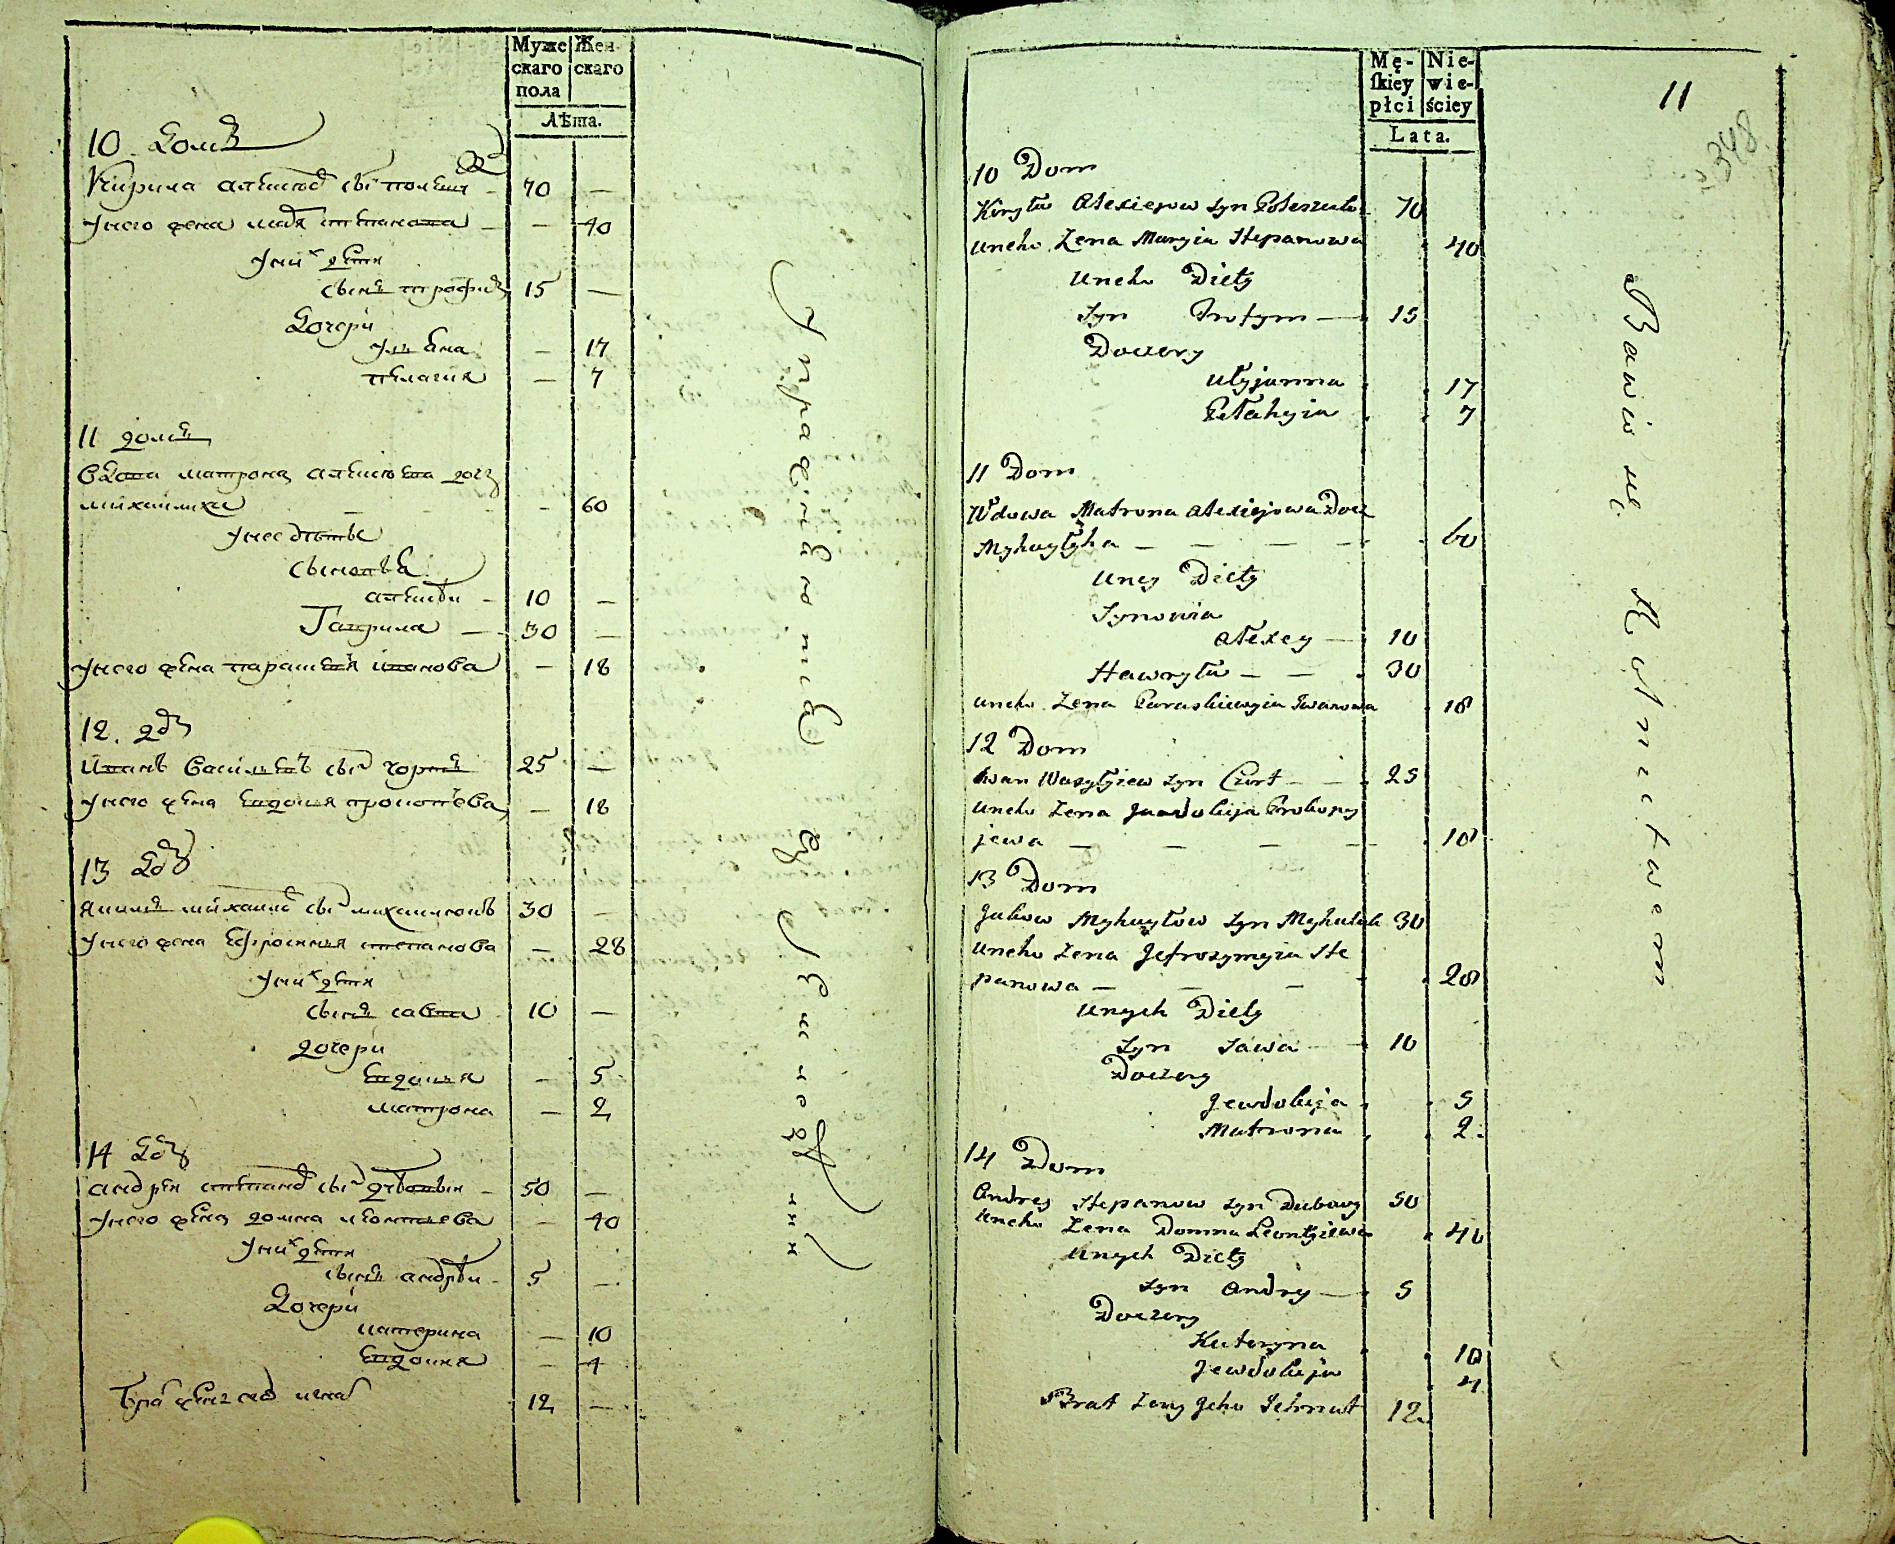 Муже Жен-
скаго скаго
пола
Лѣта.
10 домъ
Кирила алексѣевъ сынъ 70 —
у него жена марья степанова — 40
у них дети
сынъ трофимъ 15 —
дочери
ульяна — 17
пелагия — 7
11 домъ
вдова матрона алексеева дочь
михайлиха — 60
у нее дѣти
сыновья
алексѣй 10 —
Гаврила 30 —
у него жена параскевия иванова — 18
12. домъ
иванъ васильевъ сынъ чортъ 25 —
у него жена евдокия прокопьева — 18
13 домъ
яковъ михайловъ сынъ 30 —
у него жена ефросиния степанова — 28
у них дети
сынъ савва 10 —
дочери
евдокия — 5
матрона — 2
14 домъ
андрей степановъ сынъ дубовый 50 —
у него жена домна леонтьева — 40
у них дети
сынъ андрѣй 5 —
дочери
катерина — 10
евдокия — 4
братъ жены его игнат 12 —
Mę- Nie-
ſkiey wie-
płci ściey
Lata.
11
348
10 Dom
Kiryło Alexiejow syn Poleszuk 70
uneho Żena Maryia Stepanowa 40
uneho Diety
syn Trofym — 15
Doczery
Ulyjanna 17
Pełahyia 7
11 Dom
Wdowa Matrona Alexiejowa Docz
Myhayłyha — — — — 60
uney Diety
Synowia
Alexey — 10
Hawryło — — 30
uneho Żena Paraskiewyia Iwanowa 18
12 Dom
Iwan Wasylyiew syn Czort — — 25
uneho Żena Jewdokija Prokopy
jewa — — — — 18
13 Dom
Jakow Myhayłow syn 30
uneho Żena Jefrozymyia Ste
panowa — — — 28
unych Diety
syn Sawa — 10
Doczery
Jewdokija 5
Matrona 2
14 Dom
Andrey Stepanow syn Dubowy 50
uneho Żena Domna Leontyiewa 40
unych Diety
syn Andrey — 5
Doczery
Kateryna 10
Jewdokija 4
Brat Żony Jeho Ichnat 12
Bawi się Rolnictwem